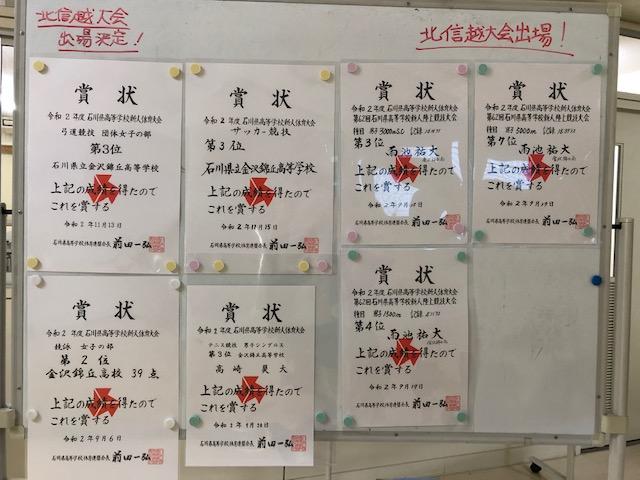 北信越大会
出場決定!
北信越大会出場!
賞状
令和2年度 石川県高等学校新人体育大会
弓道競技 団体女子の部
第3位
石川県立金沢錦丘高等学校
上記の成績を得たので
これを賞する
令和2年11月13日
石川県高等学校体育連盟会長 前田一弘
賞状
令和2年度 石川県高等学校新人体育大会
サッカー競技
第3位
石川県立金沢錦丘高等学校
上記の成績を得たので
これを賞する
令和2年11月15日
石川県高等学校体育連盟会長 前田一弘
賞状
令和2年度 石川県高等学校新人体育大会
第62回石川県高等学校新人陸上競技大会
種目 男子3000mSC 記録
第3位
雨池祐大
上記の成績を得たので
これを賞する
令和2年9月19日
石川県高等学校体育連盟会長 前田一弘
賞状
令和2年度 石川県高等学校新人体育大会
第62回石川県高等学校新人陸上競技大会
種目 男子5000m 記録
第7位
雨池祐大
上記の成績を得たので
これを賞する
令和2年9月
石川県高等学校体育連盟会長 前田一弘
賞状
令和2年度 石川県高等学校新人体育大会
競泳 女子の部
第2位
金沢錦丘高校 39点
上記の成績を得たので
これを賞する
令和2年9月6日
石川県高等学校体育連盟会長 前田一弘
賞状
令和2年度 石川県高等学校新人体育大会
テニス競技 男子シングルス
第3位 金沢錦丘高等学校
高崎 昊大
上記の成績を得たので
これを賞する
石川県高等学校体育連盟会長 前田一弘
賞状
令和2年度 石川県高等学校新人体育大会
第62回石川県高等学校新人陸上競技大会
種目 男子1500m 記録
第4位
雨池祐大
上記の成績を得たので
これを賞する
令和2年9月19日
石川県高等学校体育連盟会長 前田一弘